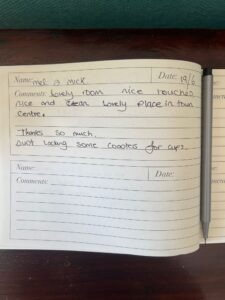 Name: mel & mick Date: 19/6
Comments: lovely room nice touches
nice and clean lovely place in town
centre.
Thanks so much.
Just lacking some coasters for cups.
Name: Date:
Comments: